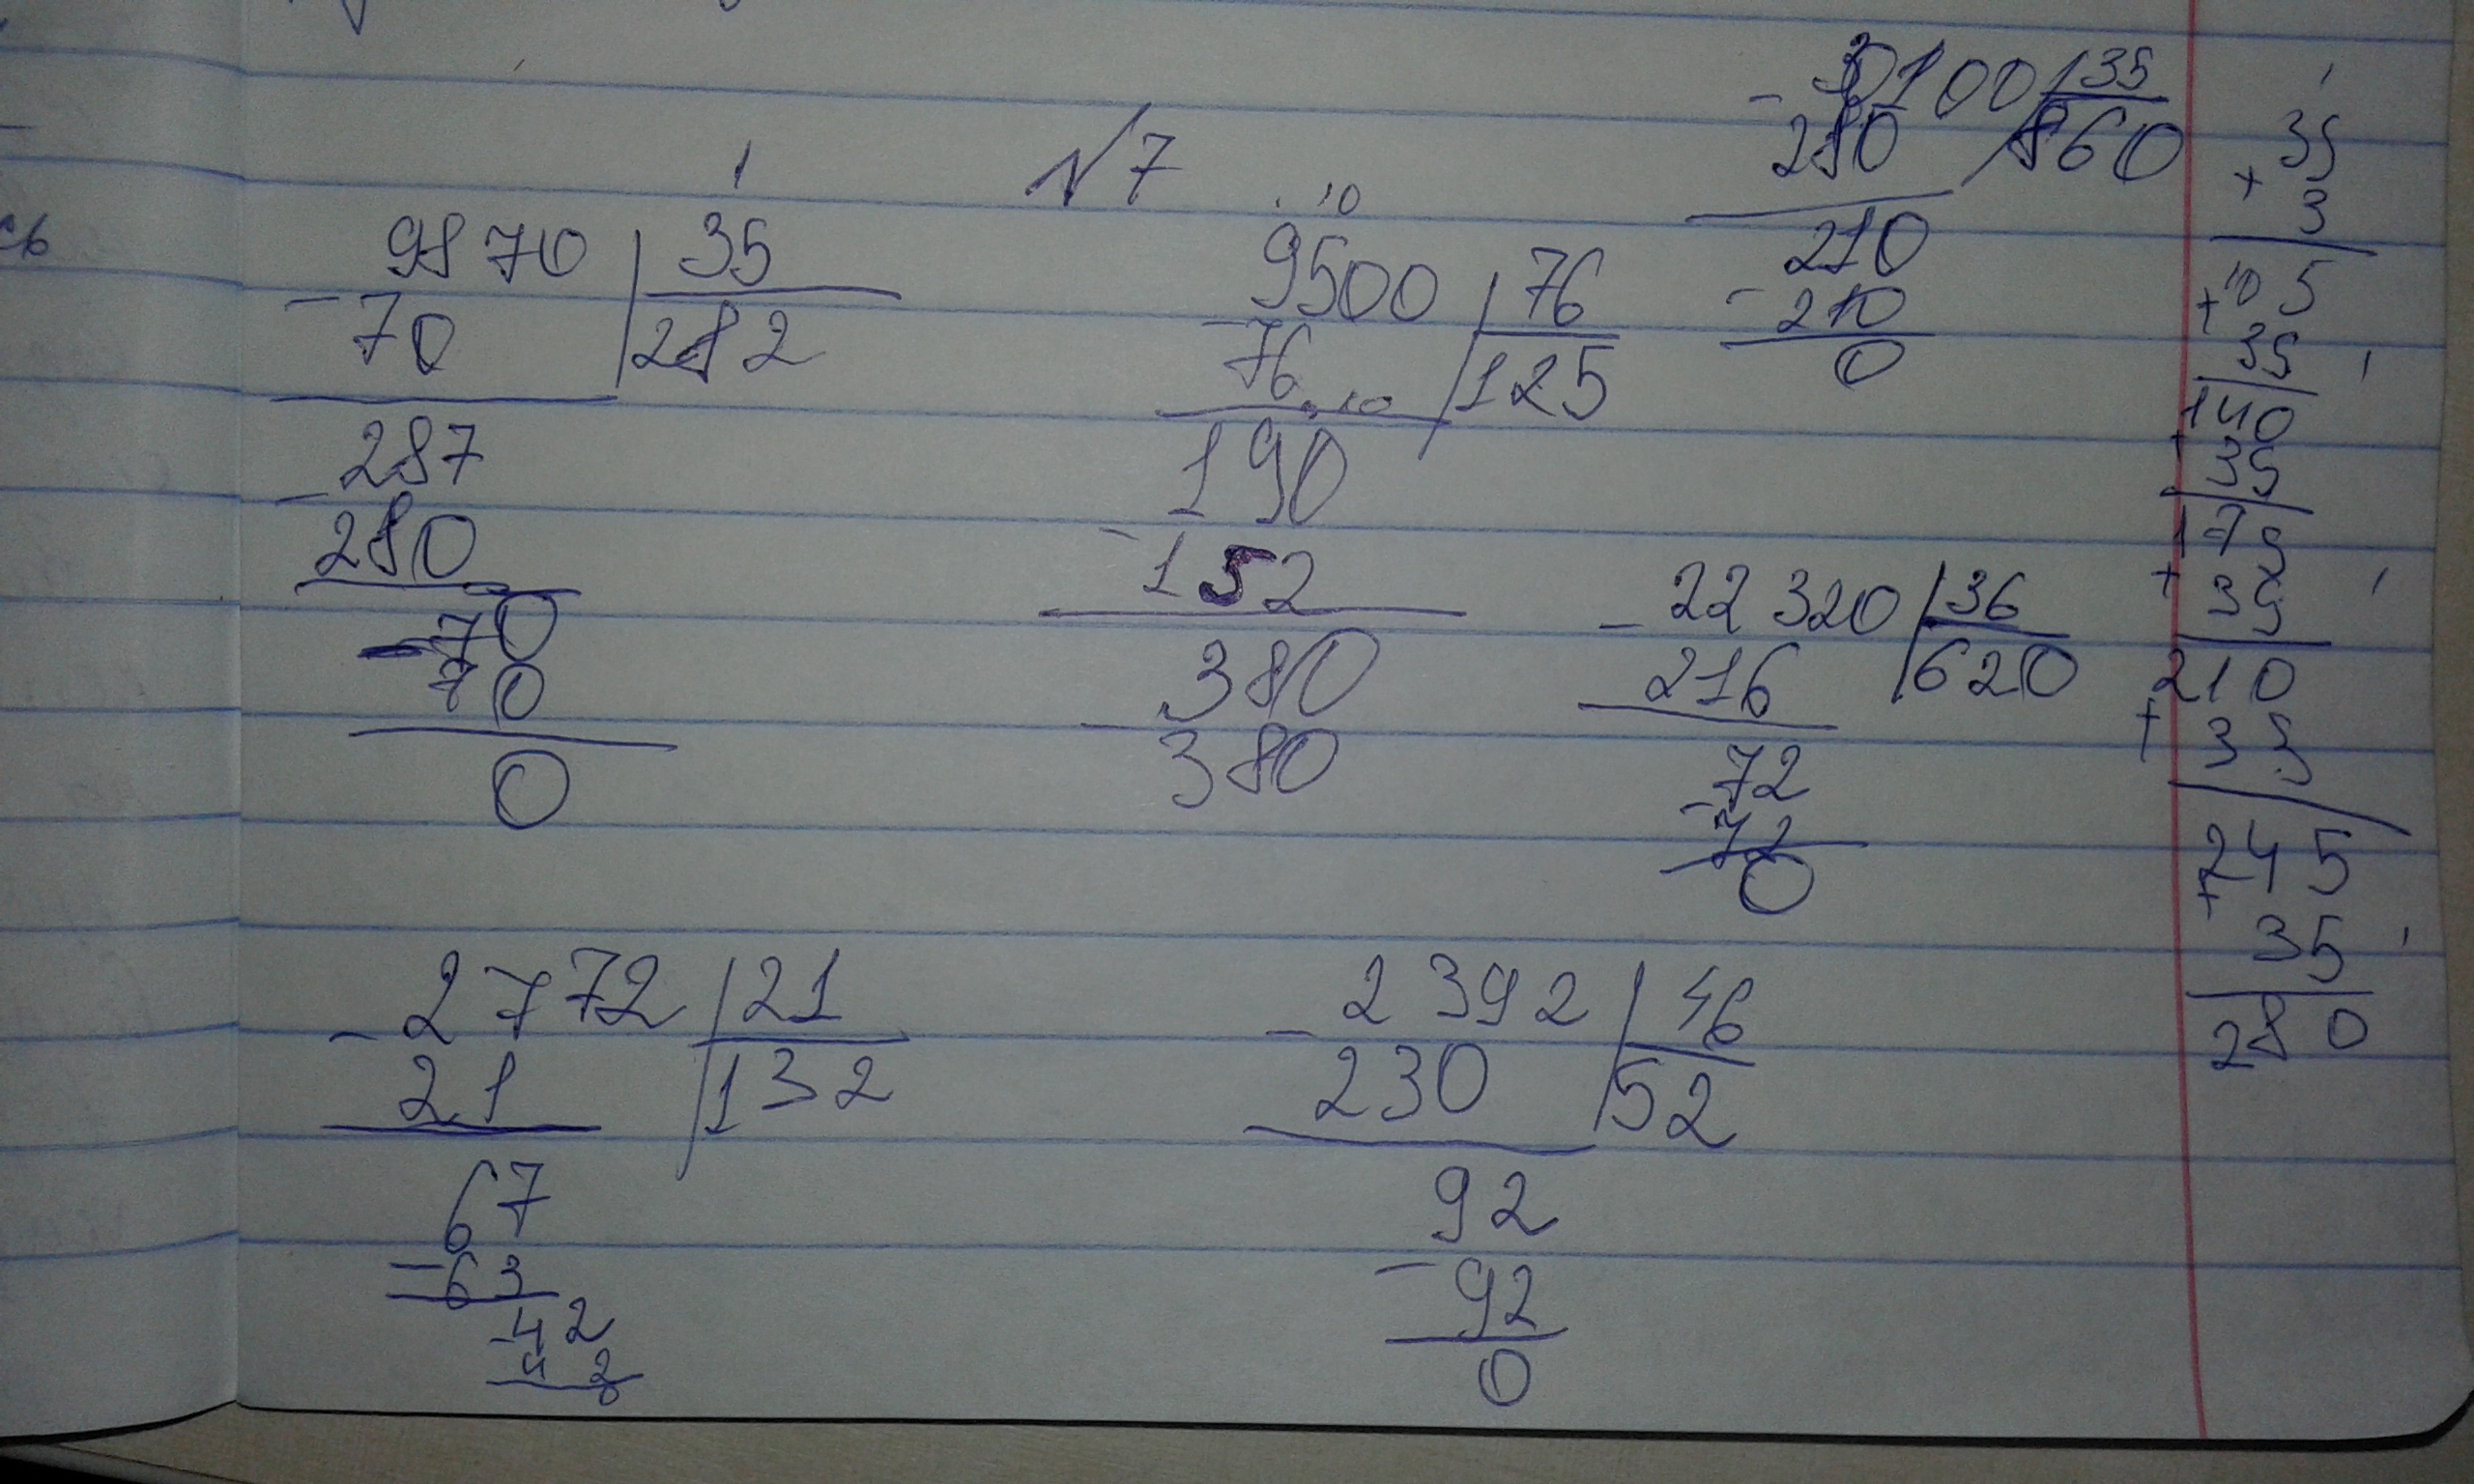 N 7
1
9870 35
- 70 282
287
- 280
- 70
70
0
10
9500 76
- 76 125
10
190
- 152
380
- 380
- 30100 35
280 860
210
- 210
0
- 22320 36
216 620
72
- 72
0
- 2772 21
21 132
67
- 63
- 42
42
0
- 2392 46
230 52
92
- 92
0
1
35
+ 3
+ 105
35 1
140
+ 35
175
+ 35 1
210
+ 35
245
+ 35 1
280
сь